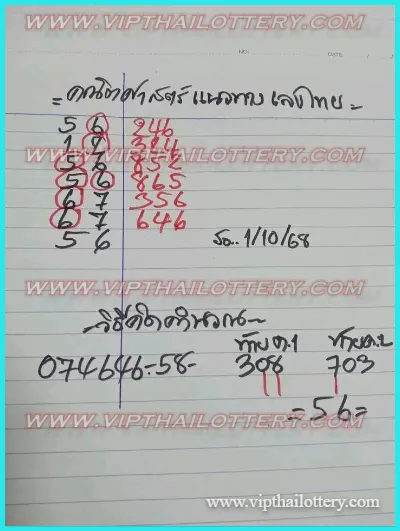 WWW.VIPTHAILOTTERY.COM
NO.
DATE
= คณิตศาสตร์แนวทางเลขไทย =
5 6 246
1 2
WWW.VIPTHAILOTTERY.COM
5 6
5 6 865
6 7 356
6 7 646
5 6 รอ.. 1/10/68
WWW.VIPTHAILOTTERY.COM
~วิธีคิดคำนวณ~
074646-58- 308 703
WWW.VIPTHAILOTTERY.COM
=56=
www.vipthailottery.com